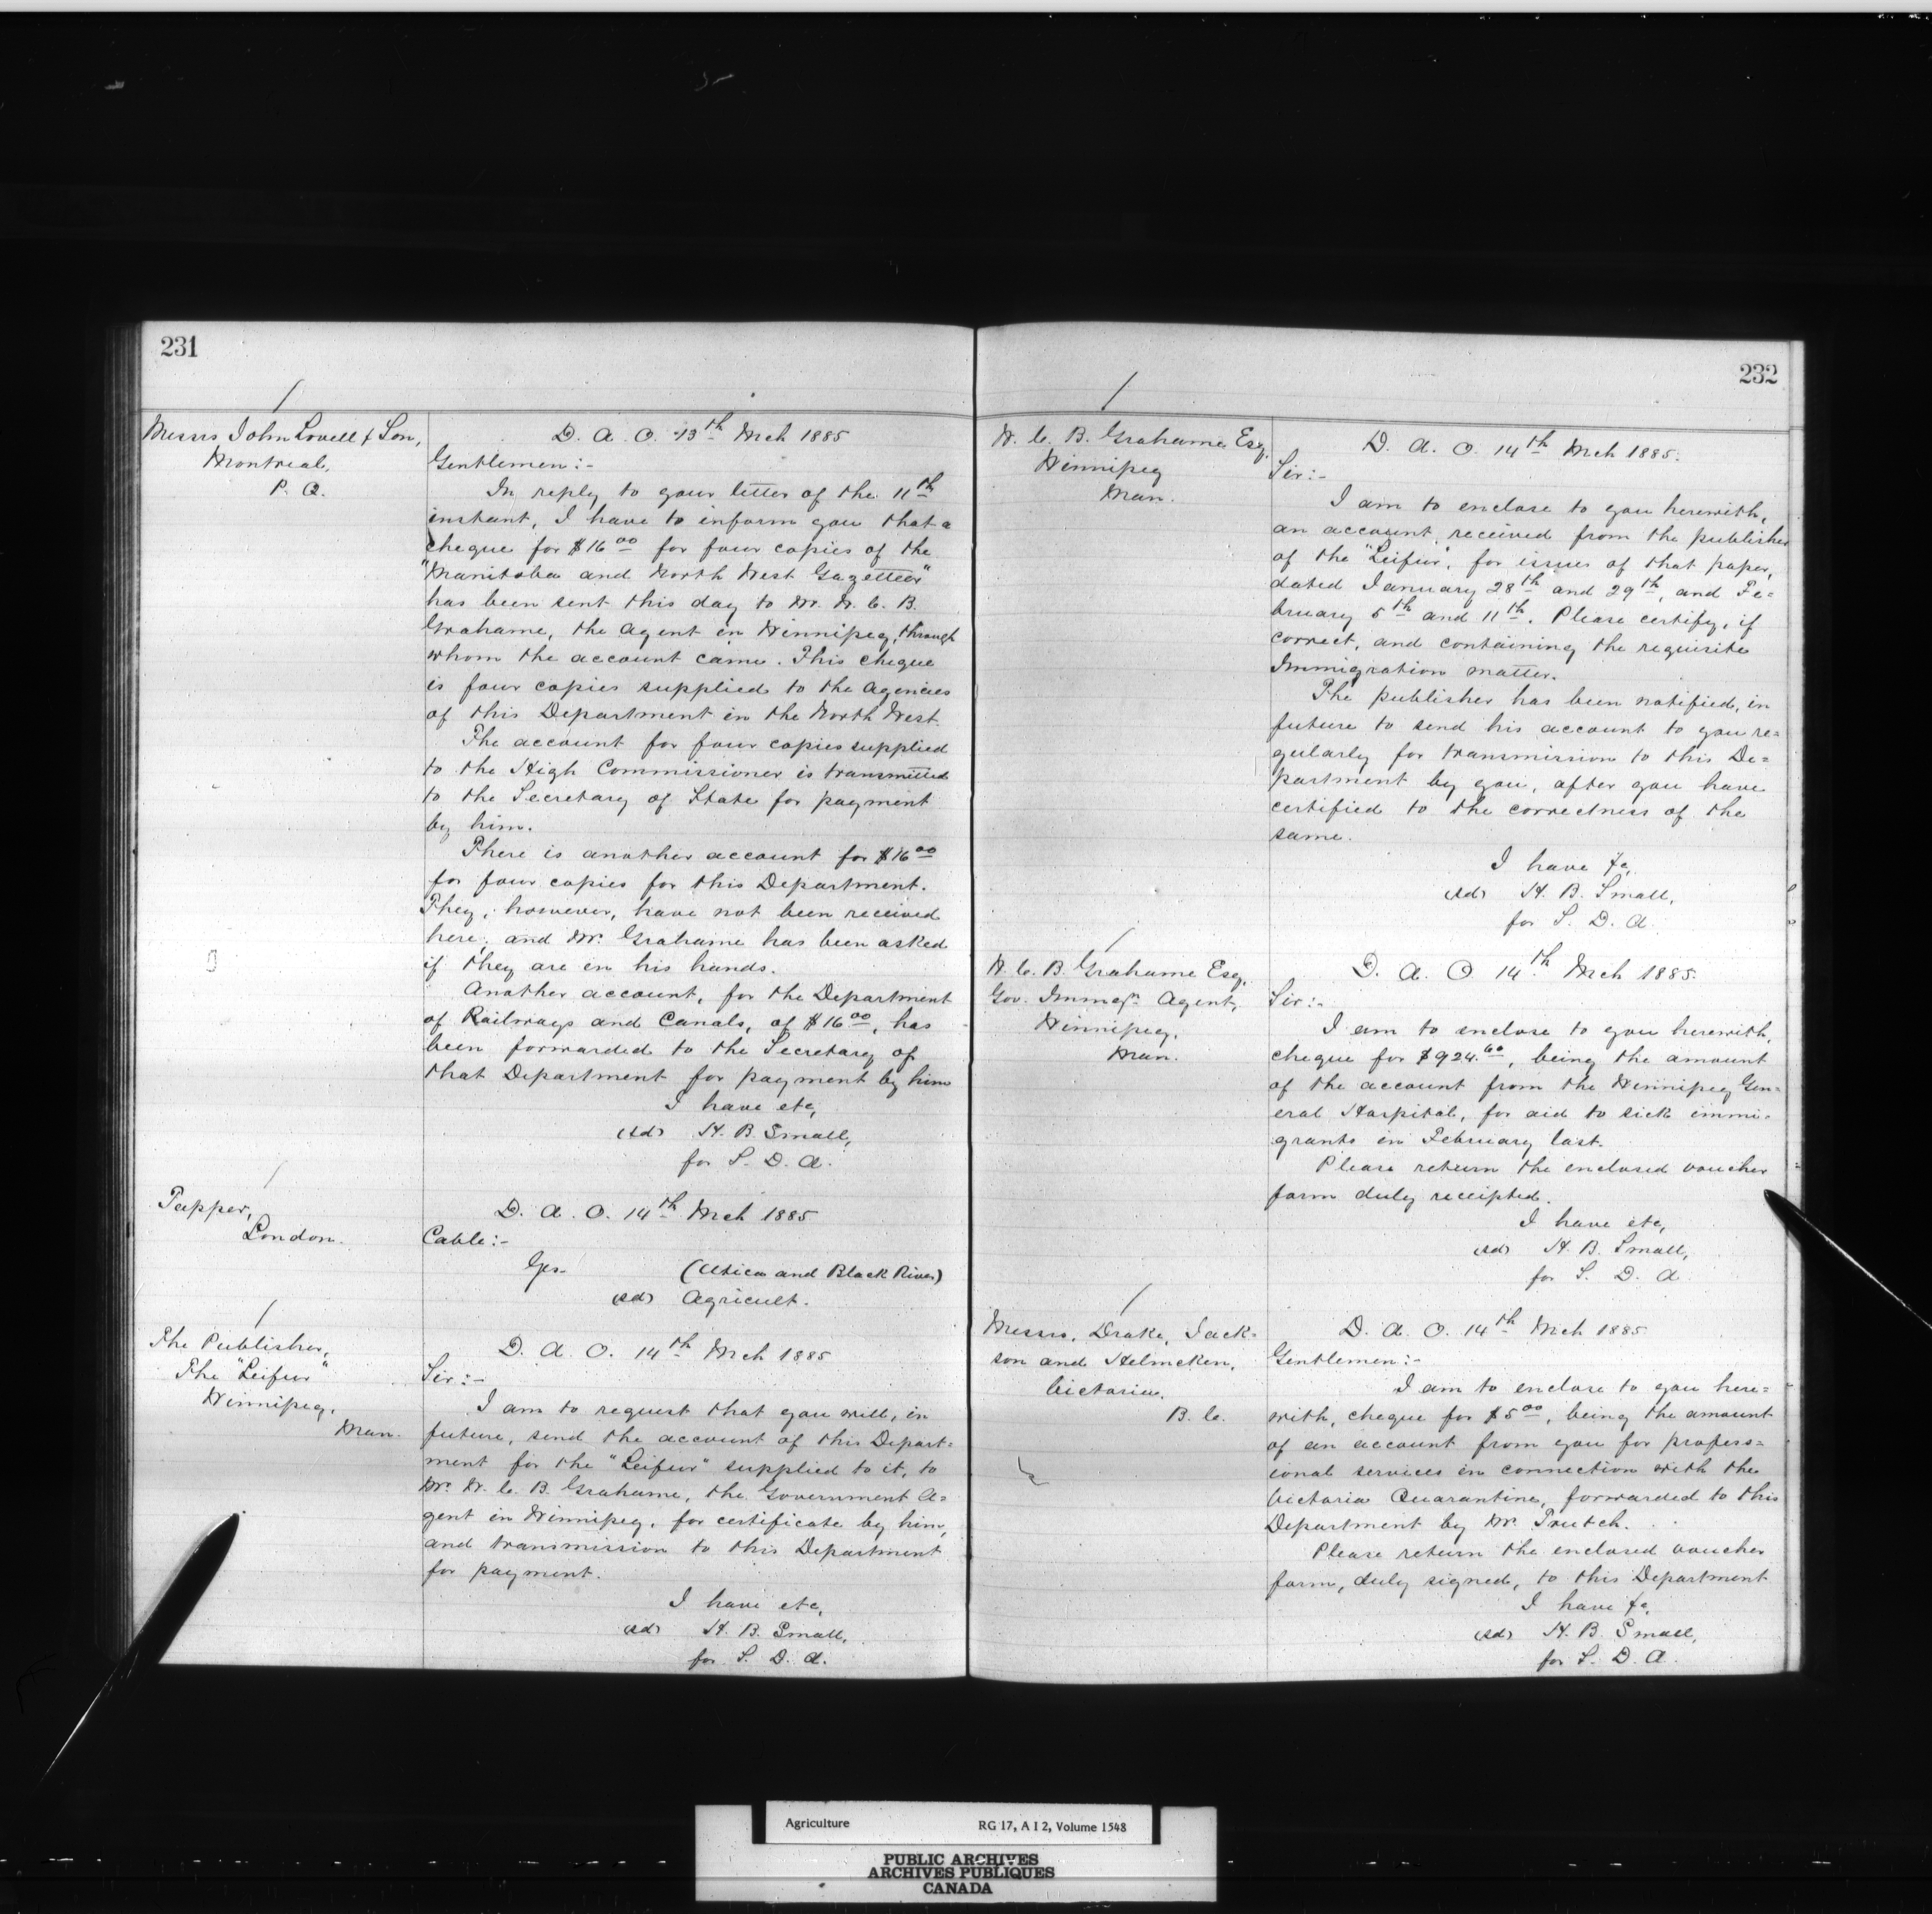 231
Messrs John Lovell & Son,
Montreal,
P. Q.
D. A. O. 13th Mch 1885
Gentlemen:-
In reply to your letter of the 11th
instant, I have to inform you that a
cheque for $16 00 for four copies of the
"Manitoba and North West Gazetteer"
has been sent this day to Mr. W. C. B.
Grahame, the Agent in Winnipeg, through
whom the account came. This cheque
is four copies supplied to the Agencies
of this Department in the North West.
The account for four copies supplied
to the High Commissioner is transmitted
to the Secretary of State for payment
by him.
There is another account for $16 00
for four copies for this Department.
They, however, have not been received
here, and Mr. Grahame has been asked
if they are in his hands.
Another account, for the Department
of Railways and Canals, of $16 00, has
been forwarded to the Secretary of
that Department for payment by him
I have etc,
(sd) H. B. Small,
for S. D. A.
Tupper,
London.
D. A. O. 14th Mch 1885
Cable:-
Yes. (Utica and Black River)
(sd) Agricult.
The Publisher,
The "Leifur"
Winnipeg,
Man.
D. A. O. 14th Mch 1885
Sir:-
I am to request that you will, in
future, send the account of this Depart=
ment for the "Leifur" supplied to it, to
Mr. W. C. B. Grahame, the Government A=
gent in Winnipeg, for certificate by him,
and transmission to this Department
for payment.
I have etc,
(sd) H. B. Small,
for S. D. A.
232
W. C. B. Grahame Esq.
Winnipeg
Man.
D. A. O. 14th Mch 1885.
Sir:-
I am to enclose to you herewith,
an account, received from the publisher
of the "Leifur", for issues of that paper,
dated January 28th and 29th, and Fe=
bruary 5th and 11th. Please certify, if
correct, and containing the requisite
Immigration matter.
The publisher has been notified, in
future to send his account to you re=
gularly for transmission to this De=
partment by you, after you have
certified to the correctness of the
same.
I have &c,
(sd) H. B. Small,
for S. D. A.
W. C. B. Grahame Esq,
Gov. Immign Agent,
Winnipeg,
Man.
D. A. O 14th Mch 1885.
Sir:-
I am to enclose to you herewith,
cheque for $924.60, being the amount
of the account from the Winnipeg Gen=
eral Hospital, for aid to sick immi=
grants in February last.
Please return the enclosed voucher
form duly receipted.
I have etc,
(sd) H. B. Small,
for S. D. A
Messrs. Drake, Jack=
son and Helmcken,
Victoria,
B. C.
D. A. O. 14th Mch 1885
Gentlemen:-
I am to enclose to you here=
with, cheque for $5 00, being the amount
of an account from you for profess=
ional services in connection with the
Victoria Quarantine, forwarded to this
Department by Mr. Trutch.
Please return the enclosed voucher
form, duly signed, to this Department
I have &c,
(sd) H. B. Small,
for S. D. A.
Agriculture RG 17, A I 2, Volume 1548
PUBLIC ARCHIVES
ARCHIVES PUBLIQUES
CANADA